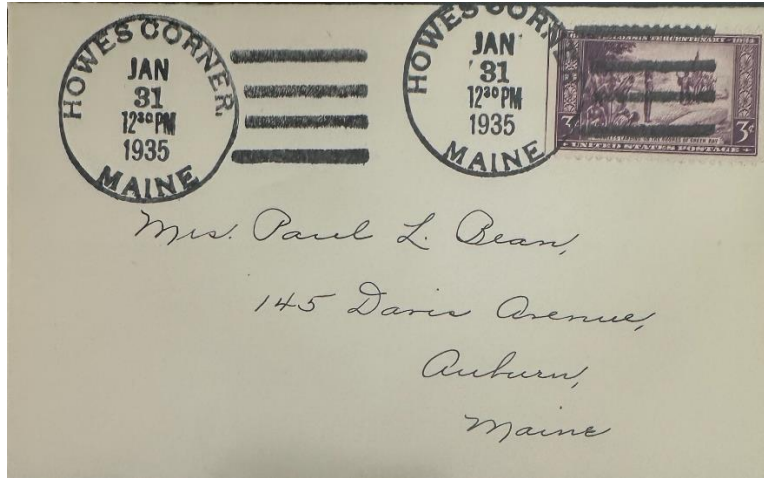 HOWES CORNER.
JAN
31
12 30 PM
1935
MAINE
HOWES CORNER
JAN
31
12 30 PM
1935
MAINE
WISCONSIN TERCENTENARY
3¢ 3¢
UNITED STATES POSTAGE
Mrs. Paul L. Bean,
145 Davis Avenue,
Auburn,
Maine